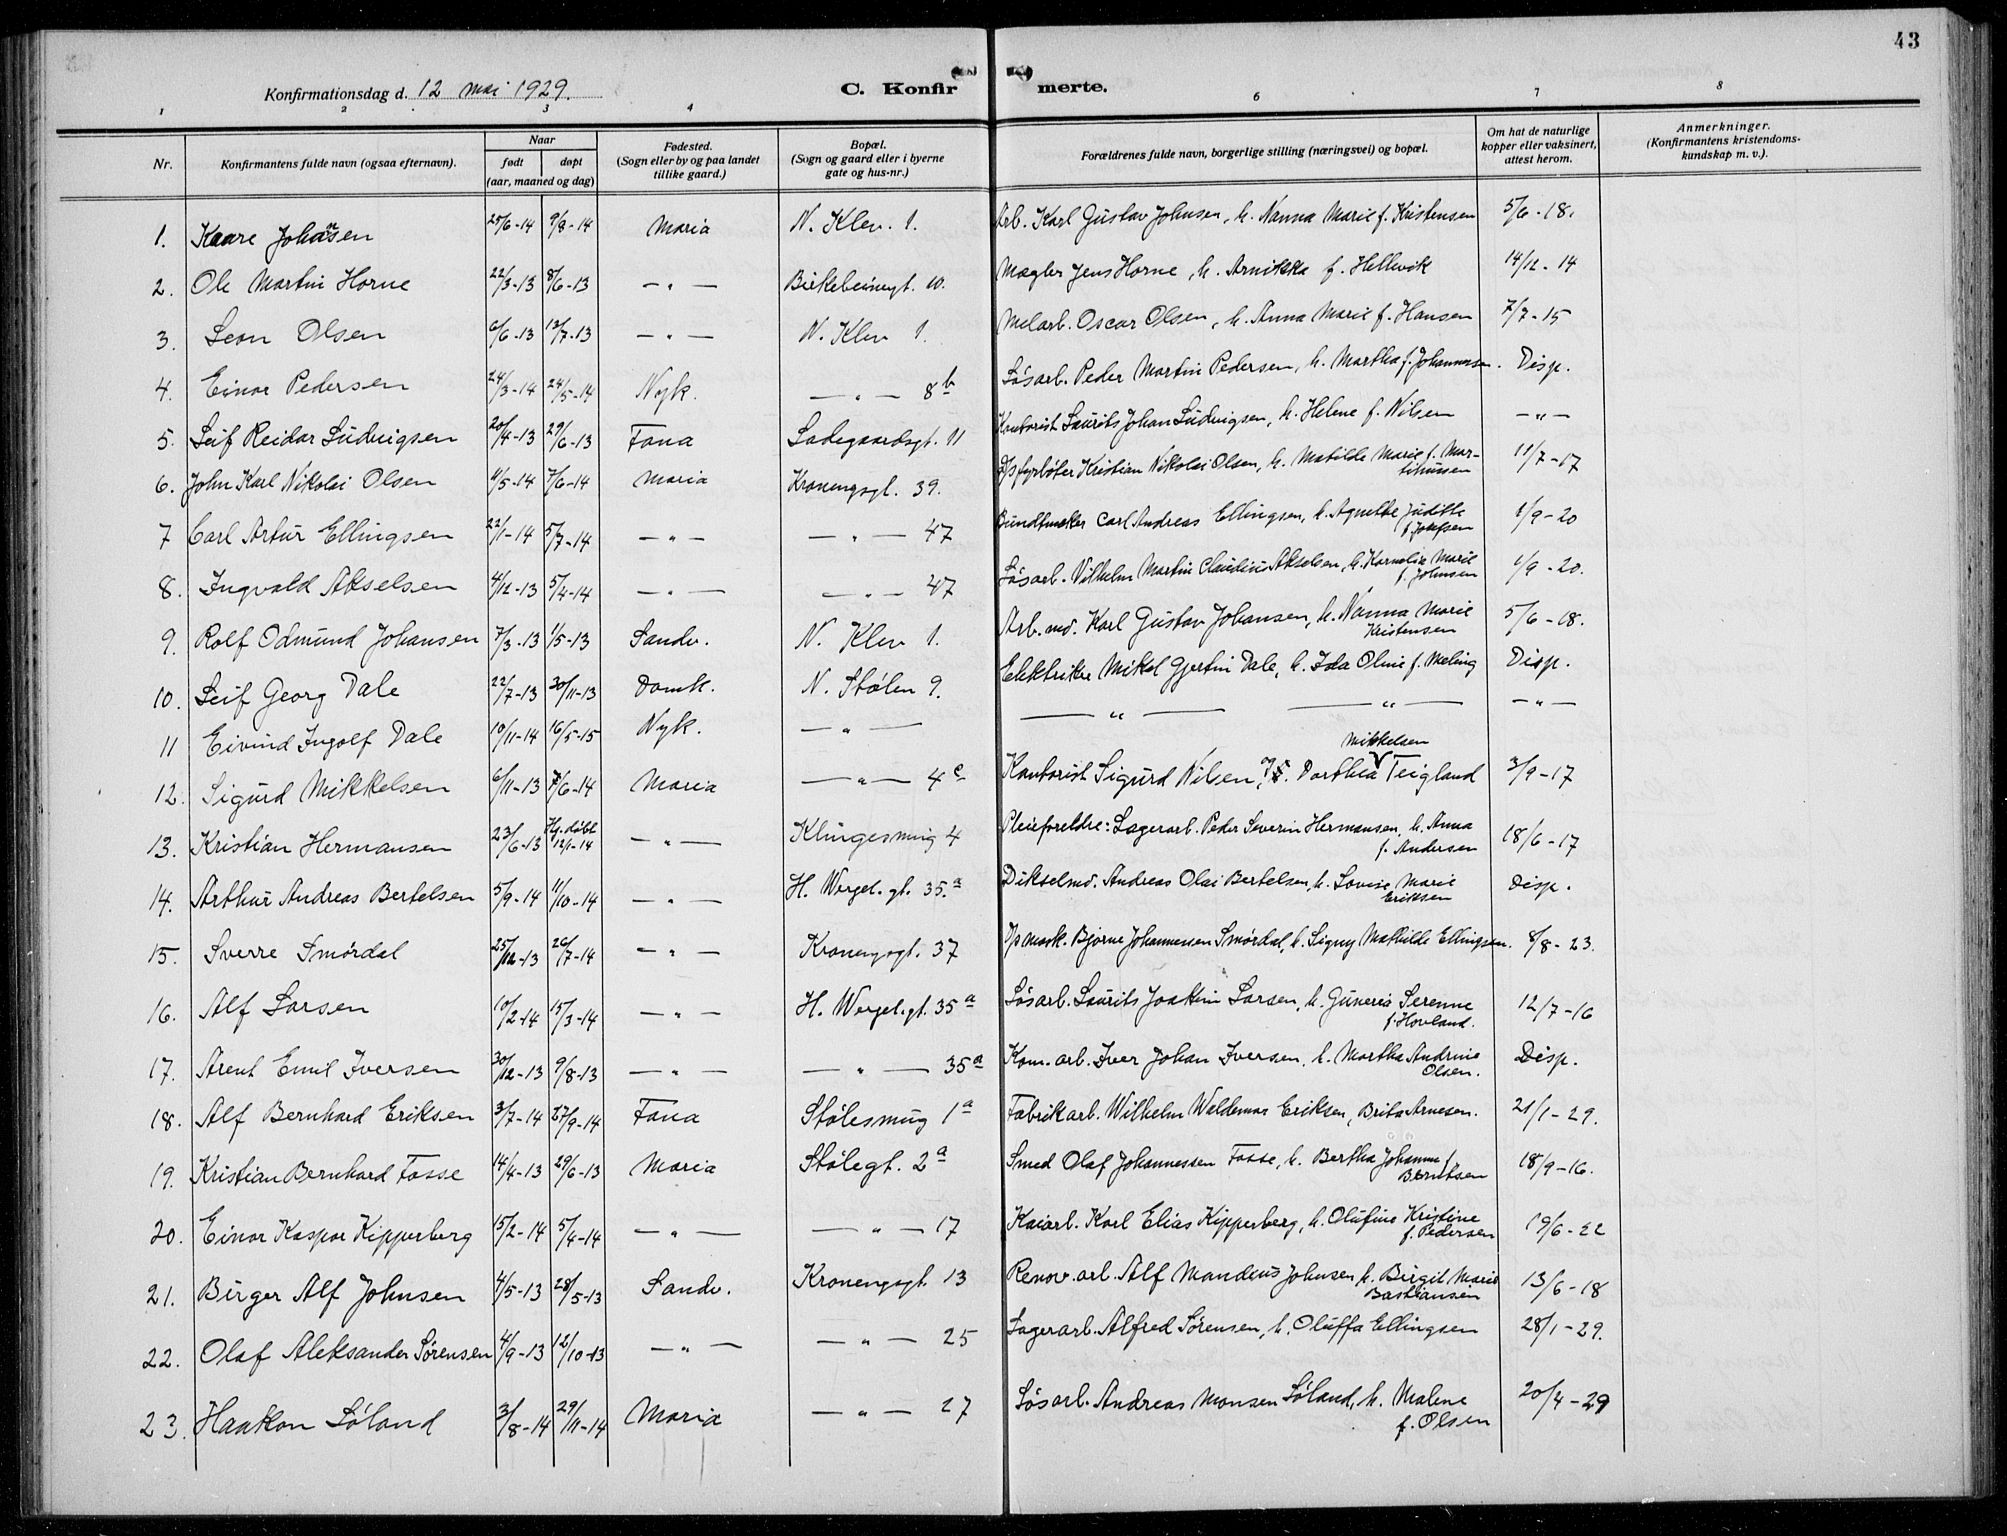 43
Konfirmationsdag d. 12 mai 1929.
C. Konfirmerte.
1 2 3 4 6 7 8
Nr. Konfirmantens fulde navn (ogsaa efternavn). Naar født døpt (aar, maaned og dag) Fødested. (Sogn eller by og paa landet tillike gaard.) Bopæl. (Sogn og gaard eller i byerne gate og hus-nr.) Forældrenes fulde navn, borgerlige stilling (næringsvei) og bopæl. Om hat de naturlige kopper eller vaksinert, attest herom. Anmerkninger. (Konfirmantens kristendoms-kundskap m. v.).
1. Kaare Johansen 25/6-14 9/8-14 Maria N. Klev. 1. Arb. Karl Gustav Johnsen, h. Nanna Marie f. Kristensen 5/6-18.
2. Ole Martin Horne 22/3-13 8/6-13 —"— Birkebeinergt. 10. Mægler Jens Horne, h. Arnikka f. Hellevik 14/12-14
3. Leon Olsen 6/6-13 13/7-13 —"— N. Klev 1. Melarb. Oscar Olsen, h. Anna Marie f. Hansen 7/7-15
4. Einar Pedersen 24/3-14 24/5-14 Nyk. —"— 8b Løsarb. Peder Martin Pedersen, h. Martha f. Johannesen. Disp.
5. Leif Reidar Ludvigsen 20/4-13 29/6-13 Fana Ladegaardsgt. 11 Kontorist Laurits Johan Ludvigsen, h. Helene f. Nilsen —"—
6. John Karl Nikolai Olsen 4/5-14 7/6-14 Maria Kronengsgt. 39. D/s fyrbøter Kristian Nikolai Olsen, h. Matilde Marie f. Martinussen 11/7-17
7 Carl Artur Ellingsen 22/1-14 5/7-14 —"— —"— 47 Bundtmaker Carl Andreas Ellingsen, h. Agnethe Judithe f. Josefsen 1/9-20
8. Ingvald Akselsen 4/12-13 5/4-14 —"— —"— 47 Løsarb. Vilhelm Martin Claudius Akselsen, h. Kornelia Marie f. Johnsen 1/9-20.
9. Rolf Odmund Johansen 7/3-13 1/5-13 Sandv. N. Klev 1. Arb.md. Karl Gustav Johansen, h. Nanna Marie Kristensen 5/6-18.
10. Leif Georg Dale 22/7-13 30/11-13 Domk. N. Stølen 9. Elektriker Mikal Gjertin Dale, h. Ida Oline f. Meling Disp.
11 Eivind Ingolf Dale 10/11-14 16/5-15 Nyk. —"— —"— —"— —"—
12. Sigurd Mikkelsen 6/11-13 7/6-14 Maria —"— 4c Kontorist Sigurd Nilsen, Dorthea Mikkelsen Teigland 3/9-17
13. Kristian Hermansen 23/6-13 Hj. døbt 12/1-14 —"— Klingesmug 4 Pleieforeldre: Lagerarb. Peder Severin Hermansen, h. Anna f. Andersen 18/6-17
14. Arthur Andreas Bertelsen 5/9-14 11/10-14 —"— H. Wergel. gt. 35.a Dikselmd. Andreas Olai Bertelsen, h. Lovise Marie Eriksen Disp.
15. Sverre Smørdal 25/12-13 26/7-14 —"— Kronengsgt. 37 D/s mask. Bjarne Johannessen Smørdal, h. Signy Mathilde Ellingsen. 8/8-23.
16. Alf Larsen 10/2-14 15/3-14 —"— H. Wergel. gt. 35a Løsarb. Laurits Joakim Larsen, h. Guneria Serenne f. Hovland. 12/7-16
17. Arent Emil Iversen 30/12-13 9/8-13 —"— —"— 35a Kom. arb. Iver Johan Iversen, h. Martha Andrine Olsen. Disp.
18. Alf Bernhard Eriksen 3/7-14 27/9-14 Fana Stølesmug 1a Fabrikarb. Wilhelm Waldemar Eriksen, Brita Arnesen. 21/1-29.
19. Kristian Bernhard Fosse 14/4-13 29/6-13 Maria Stølegt. 2a Smed Olaf Johannessen Fosse, h. Bertha Johanne f. Berntsen 18/9-16.
20. Einar Kaspar Kipperberg 15/2-14 5/4-14 —"— —"— 17 Kaiarb. Karl Elias Kipperberg, h. Olufine Kristine f. Pedersen 19/6-22
21. Birger Alf Johnsen 4/5-13 28/5-13 Sandv. Kronengsgt. 13 Renov. arb. Alf Mandeus Johnsen, h. Birgit Marie Bastiansen 13/6-18
22. Olaf Aleksander Sørensen 4/9-13 12/10-13 —"— —"— 25 Lagerarb. Alfred Sørensen, h. Oluffa Ellingsen 28/1-29.
23. Haakon Søland 3/8-14 29/11-14 Maria —"— 27 Løsarb. Andreas Monsen Søland, h. Malene f. Olsen 20/4-29